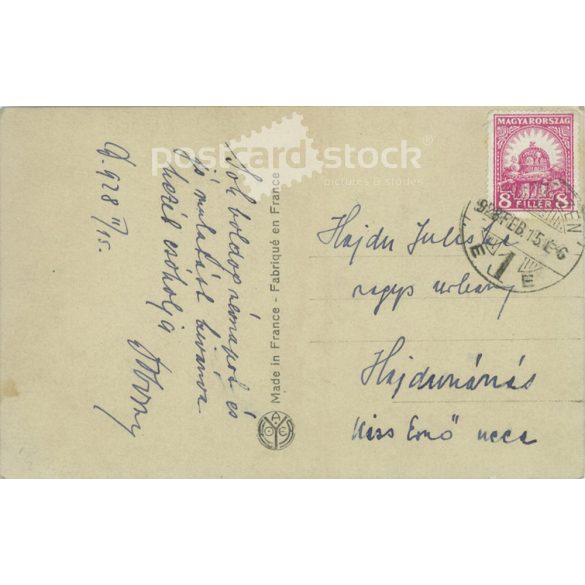 postcard stock
pictures & studies
D. 928 II/15.
Sok boldog névnapot és
jó mulatást kívánva
kezét csókolja
Made in France - Fabriqué en France
MAGYARORSZÁG
8 FILLÉR 8
928.FEB.15
1
Hajdu Juliska
nagys urleány
Hajdunánás
Kiss Ernő ucca